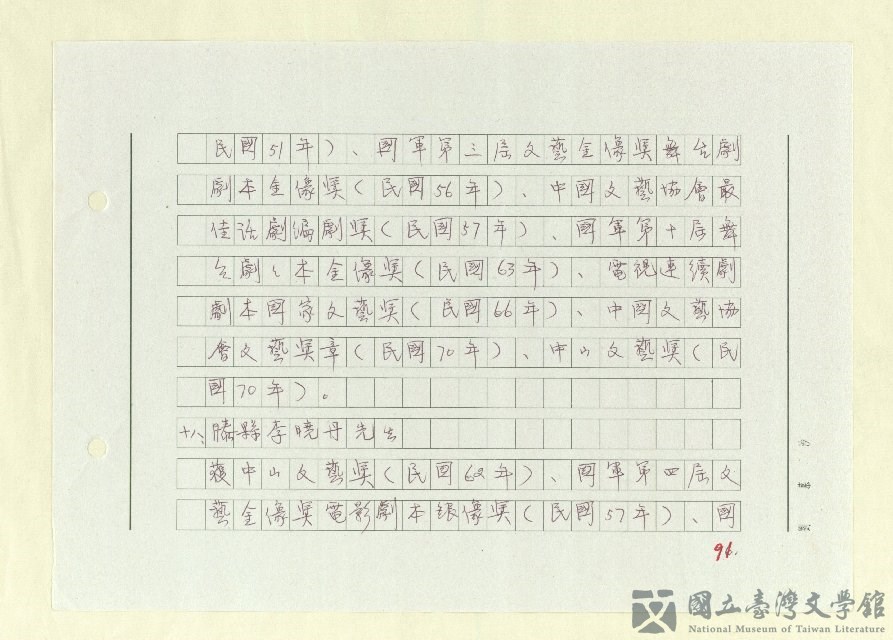 民國51年)、國軍第三屆文藝金像獎舞台劇
劇本金像獎(民國56年)、中國文藝協會最
佳話劇編劇獎(民國57年)、國軍第十屆舞
台劇々本金像獎(民國63年)、電視連續劇
劇本國家文藝獎(民國66年)、中國文藝協
會文藝獎章(民國70年)、中山文藝獎(民
國70年)。
十八、滕縣李曉丹先生
獲中山文藝獎(民國62年)、國軍第四屆文
藝金像獎電影劇本銀像獎(民國57年)、國
國立臺灣文學館
National Museum of Taiwan Literature